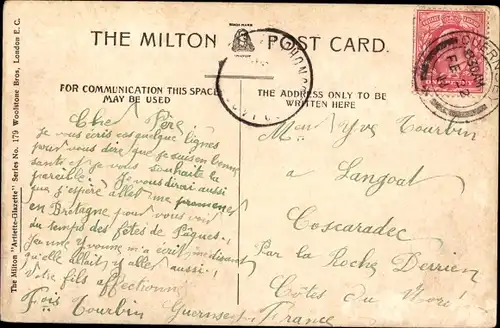 THE MILTON POST CARD.
FOR COMMUNICATION THIS SPACE
MAY BE USED
THE ADDRESS ONLY TO BE
WRITTEN HERE
The Milton "Artlette-Glazette" Series No. 179 Woolstone Bros, London E.C.
GUERN
FE 12
Cher Père
je vous écris ces quelque lignes
pour vous dire que je suis en bonne
santé et je vous souhaite la
pareille. Je vous dirai aussi
que j'espère aller me promener
en Bretagne pour vous voir
du temps des fêtes de Pâques.
Jeanne Yvonne m'a écrit me disant
qu'elle allait y aller aussi!
Votre fils affectionné
Fois Tourbin Guernsey
Mon Yve Tourbin
à Langoat
Coscaradec
Par la Roche Derrien
Côtes du Nord
France